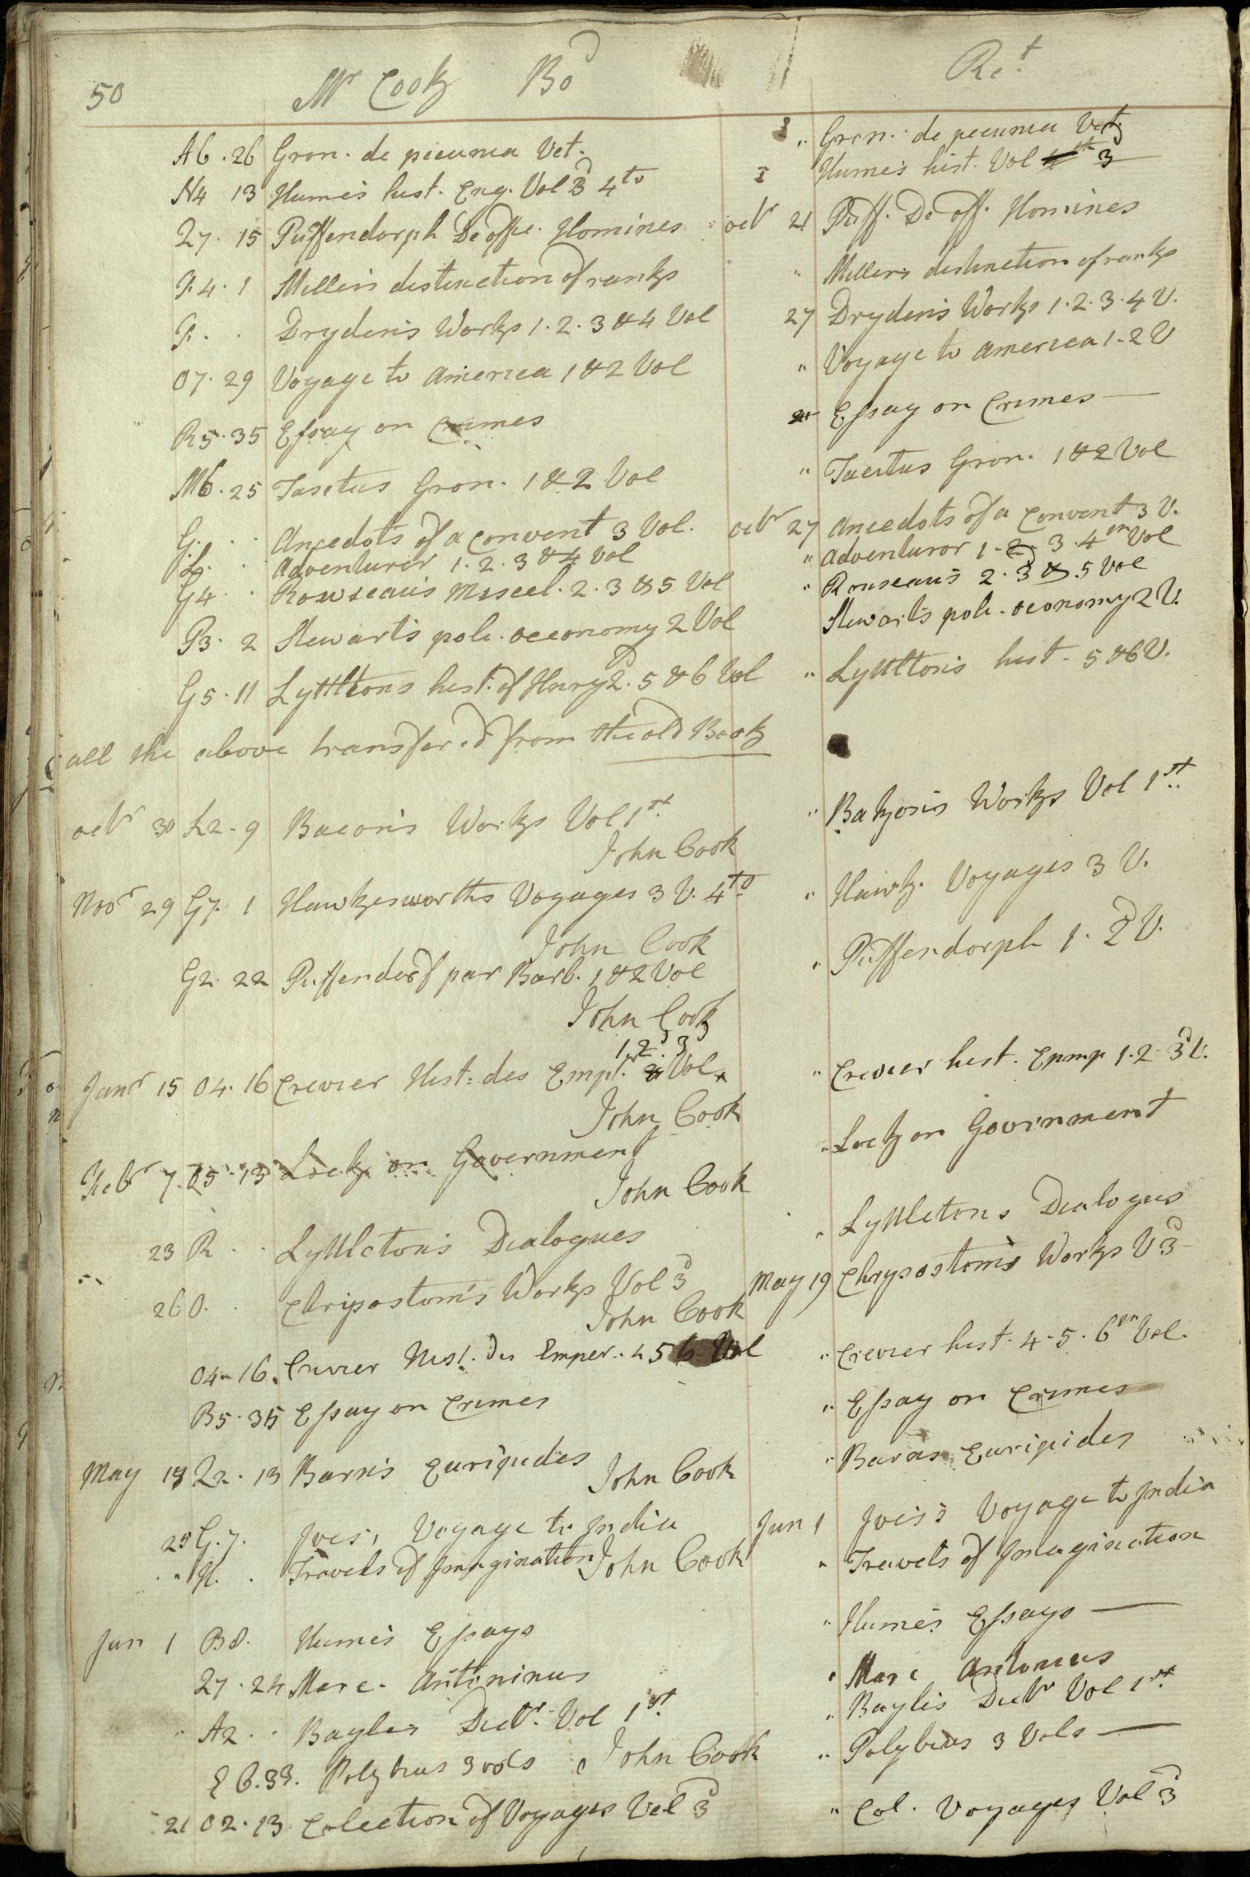 50 Mr Cook Bod Ret
A6 · 26 Gron. de pecunia Vet. I " Gron. de pecunia Vet
N4 13 Hume's hist. Eng. Vol 3d 4to I Hume's hist. Vol 3
Z7 · 15 Puffendorph De offic. Hominis octr 21 Puff. De off. Hominis
P4 · 1 Millers distinction of ranks " Millers distinction of ranks
P · · Dryden's Works 1 · 2 · 3 & 4 Vol 27 Dryden's Works 1 · 2 · 3 · 4 V.
O7 · 29 Voyage to America 1 & 2 Vol " Voyage to america 1 - 2 V
R5 · 35 Essay on Crimes Essay on Crimes —
M6 · 25 Tasitus Gron. 1 & 2 Vol " Tacitus Gron. 1 & 2 Vol
G · · Ancedots of a convent 3 Vol. octr 27 Ancedots of a convent 3 V.
L · Adventurer 1 · 2 · 3 & 4 Vol " Adventuror 1 - 2 · 3 · 4th Vol
G4 · · Rousseau's Miscel. 2 · 3 & 5 Vol " Rouseau's 2 · 3 & 5 Vol
P3 · 2 Stewart's pole. oeconomy 2 Vol Stewarts pole. oeconomy 2 V.
G5 · 11 Lyttltons hist. of Henry 2d. 5 & 6 Vol " Lyttlton's hist - 5 & 6 V.
all the above transfered from the old Book
octr 30 L2 - 9 Bacon's Works Vol 1st " Bakon's Works Vol 1st
John Cook
Novr 29 G7 · 1 Hawkesworth's Voyages 3 V. 4to " Hawk. Voyages 3 V.
John Cook
G2 · 22 Puffendorf par Barb. 1 & 2 Vol " Puffendorph 1 · 2d V.
John Cook
1 2d 3d
Janr 15 O4 · 16 Crevier Hist. des Empr. Vol " Crevier hist. Epmp 1 · 2 · 3d V.
John Cook
Febr 7 O5 · 13 Lock on Government " Lock on Government
John Cook
23 R · · Lyttleton's Dialogues " Lyttleton's Dialogues
26 O · Chripostom's Works Vol 3d May 19 Chrysostom's Works V 3d
John Cook
O4 - 16 Crevier Hist. des Emper. 4 5 6 Vol " Crevier hist. 4 - 5 · 6th Vol.
B5 · 35 Essay on Crimes " Essay on Crimes
May 19 Z2 · 13 Barn's Euripides " Barns Euripides
John Cook
29 G · 7 · Ives's Voyage to India Jun 1 Ives's Voyage to India
" H · Travels of Imagination John Cook " Travels of Imagination
Jun 1 B8 · Hume's Essays " Hume's Essays —
Z7 · 24 Marc. Antininus " Marc Antonius
A2 · · Bayles Dictr. Vol 1st " Bayle's Dictr Vol 1st
E6 · 33 · Polybius 3 vols John Cook " Polybius 3 Vols —
21 O2 · 13 Colection of Voyages Vol 3d " Col. Voyages Vol 3d